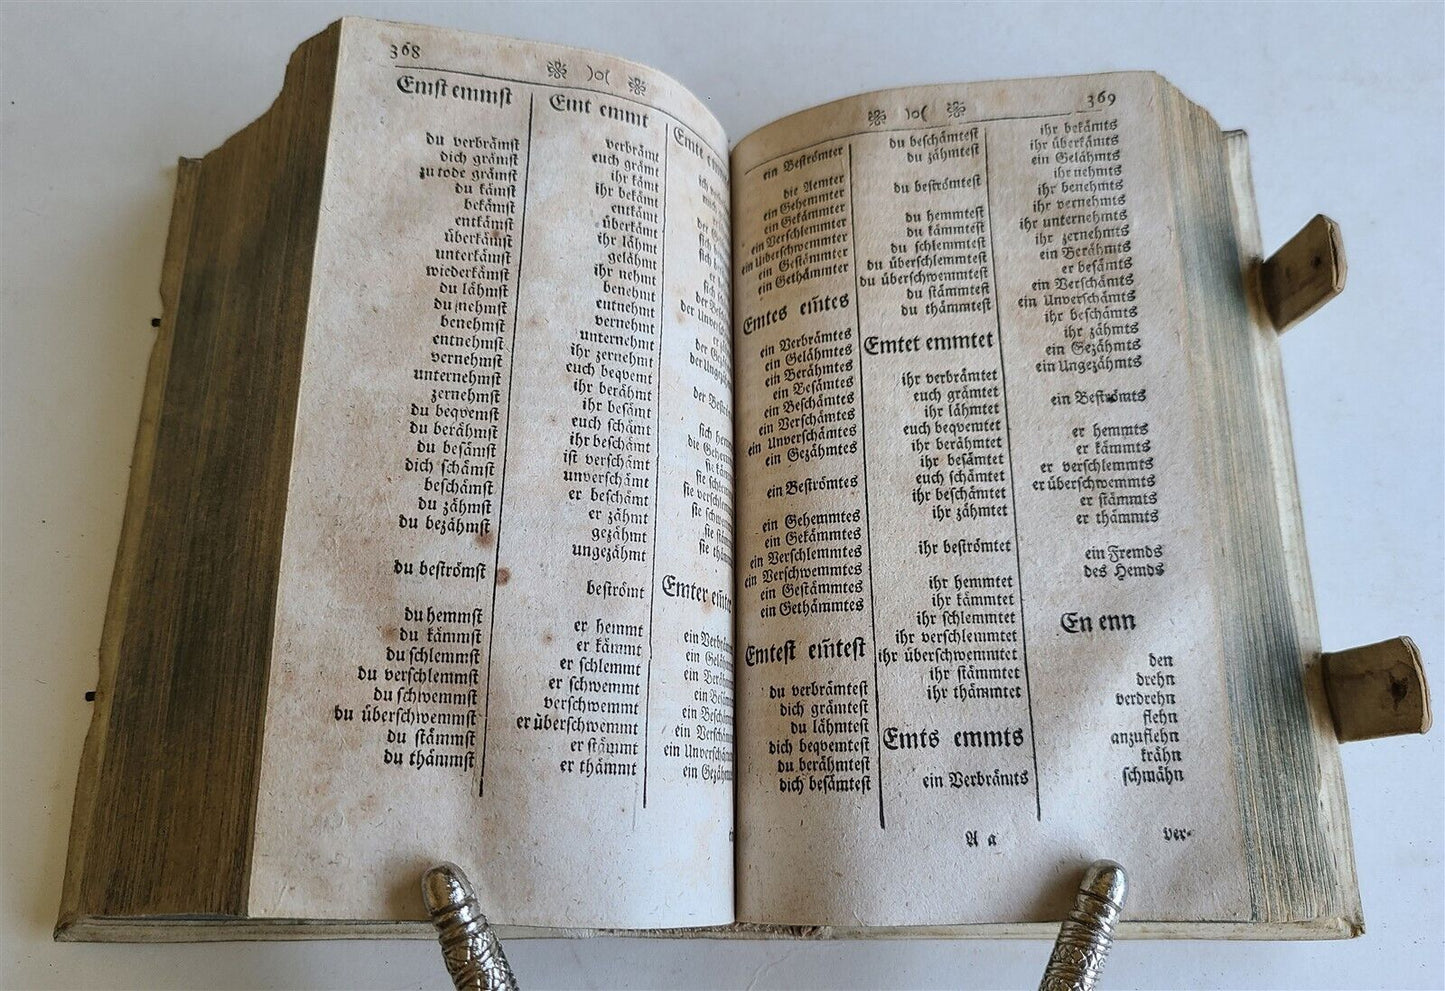 368
)o(
Emst emmst
du verbrämst
dich grämst
zu tode grämst
du kämst
bekämst
entkämst
überkämst
unterkämst
wiederkämst
du lähmst
du nehmst
benehmst
entnehmst
vernehmst
unternehmst
zernehmst
du beqvemst
du berähmst
du besämst
dich schämst
beschämst
du zähmst
du bezähmst
du beströmst
du hemmst
du kämmst
du schlemmst
du verschlemmst
du schwemmst
du überschwemmst
du stämmst
du thämmst
Emt emmt
verbrämt
euch grämt
ihr kämt
ihr bekämt
entkämt
überkämt
ihr lähmt
gelähmt
ihr nehmt
benehmt
entnehmt
vernehmt
unternehmt
ihr zernehmt
euch beqvemt
ihr berähmt
ihr besämt
euch schämt
ihr beschämt
ist verschämt
unverschämt
er beschämt
er zähmt
gezähmt
ungezähmt
beströmt
er hemmt
er kämmt
er schlemmt
er schwemmt
verschwemmt
er überschwemmt
er stämmt
er thämmt
Emte
Emter em̄ter
)o(
369
ein Beströmter
die Aemter
ein Gehemmter
ein Gekämmter
ein Verschlemmter
ein Uiberschwemmter
ein Gestämmter
ein Gethämmter
Emtes em̄tes
ein Verbrämtes
ein Gelähmtes
ein Berähmtes
ein Besämtes
ein Beschämtes
ein Verschämtes
ein Unverschämtes
ein Gezähmtes
ein Beströmtes
ein Gehemmtes
ein Gekämmtes
ein Verschlemmtes
ein Verschwemmtes
ein Gestämmtes
ein Gethämmtes
Emtest em̄test
du verbrämtest
dich grämtest
du lähmtest
dich beqvemtest
du berähmtest
dich besämtest
du beschämtest
du zähmtest
du beströmtest
du hemmtest
du kämmtest
du schlemmtest
du überschlemmtest
du überschwemmtest
du stämmtest
du thämmtest
Emtet emmtet
ihr verbrämtet
euch grämtet
ihr lähmtet
euch beqvemtet
ihr berähmtet
ihr besämtet
euch schämtet
ihr beschämtet
ihr zähmtet
ihr beströmtet
ihr hemmtet
ihr kämmtet
ihr schlemmtet
ihr verschlemmtet
ihr überschwemmtet
ihr stämmtet
ihr thämmtet
Emts emmts
ein Verbrämts
ihr bekämts
ihr überkämts
ein Gelähmts
ihr nehmts
ihr benehmts
ihr vernehmts
ihr unternehmts
ihr zernehmts
ein Berähmts
er besämts
ein Verschämts
ein Unverschämts
ihr beschämts
ihr zähmts
ein Gezähmts
ein Ungezähmts
ein Beströmts
er hemmts
er kämmts
er verschlemmts
er überschwemmts
er stämmts
er thämmts
ein Fremds
des Hemds
En enn
den
drehn
verdrehn
flehn
anzuflehn
krähn
schmähn
A a
ver-